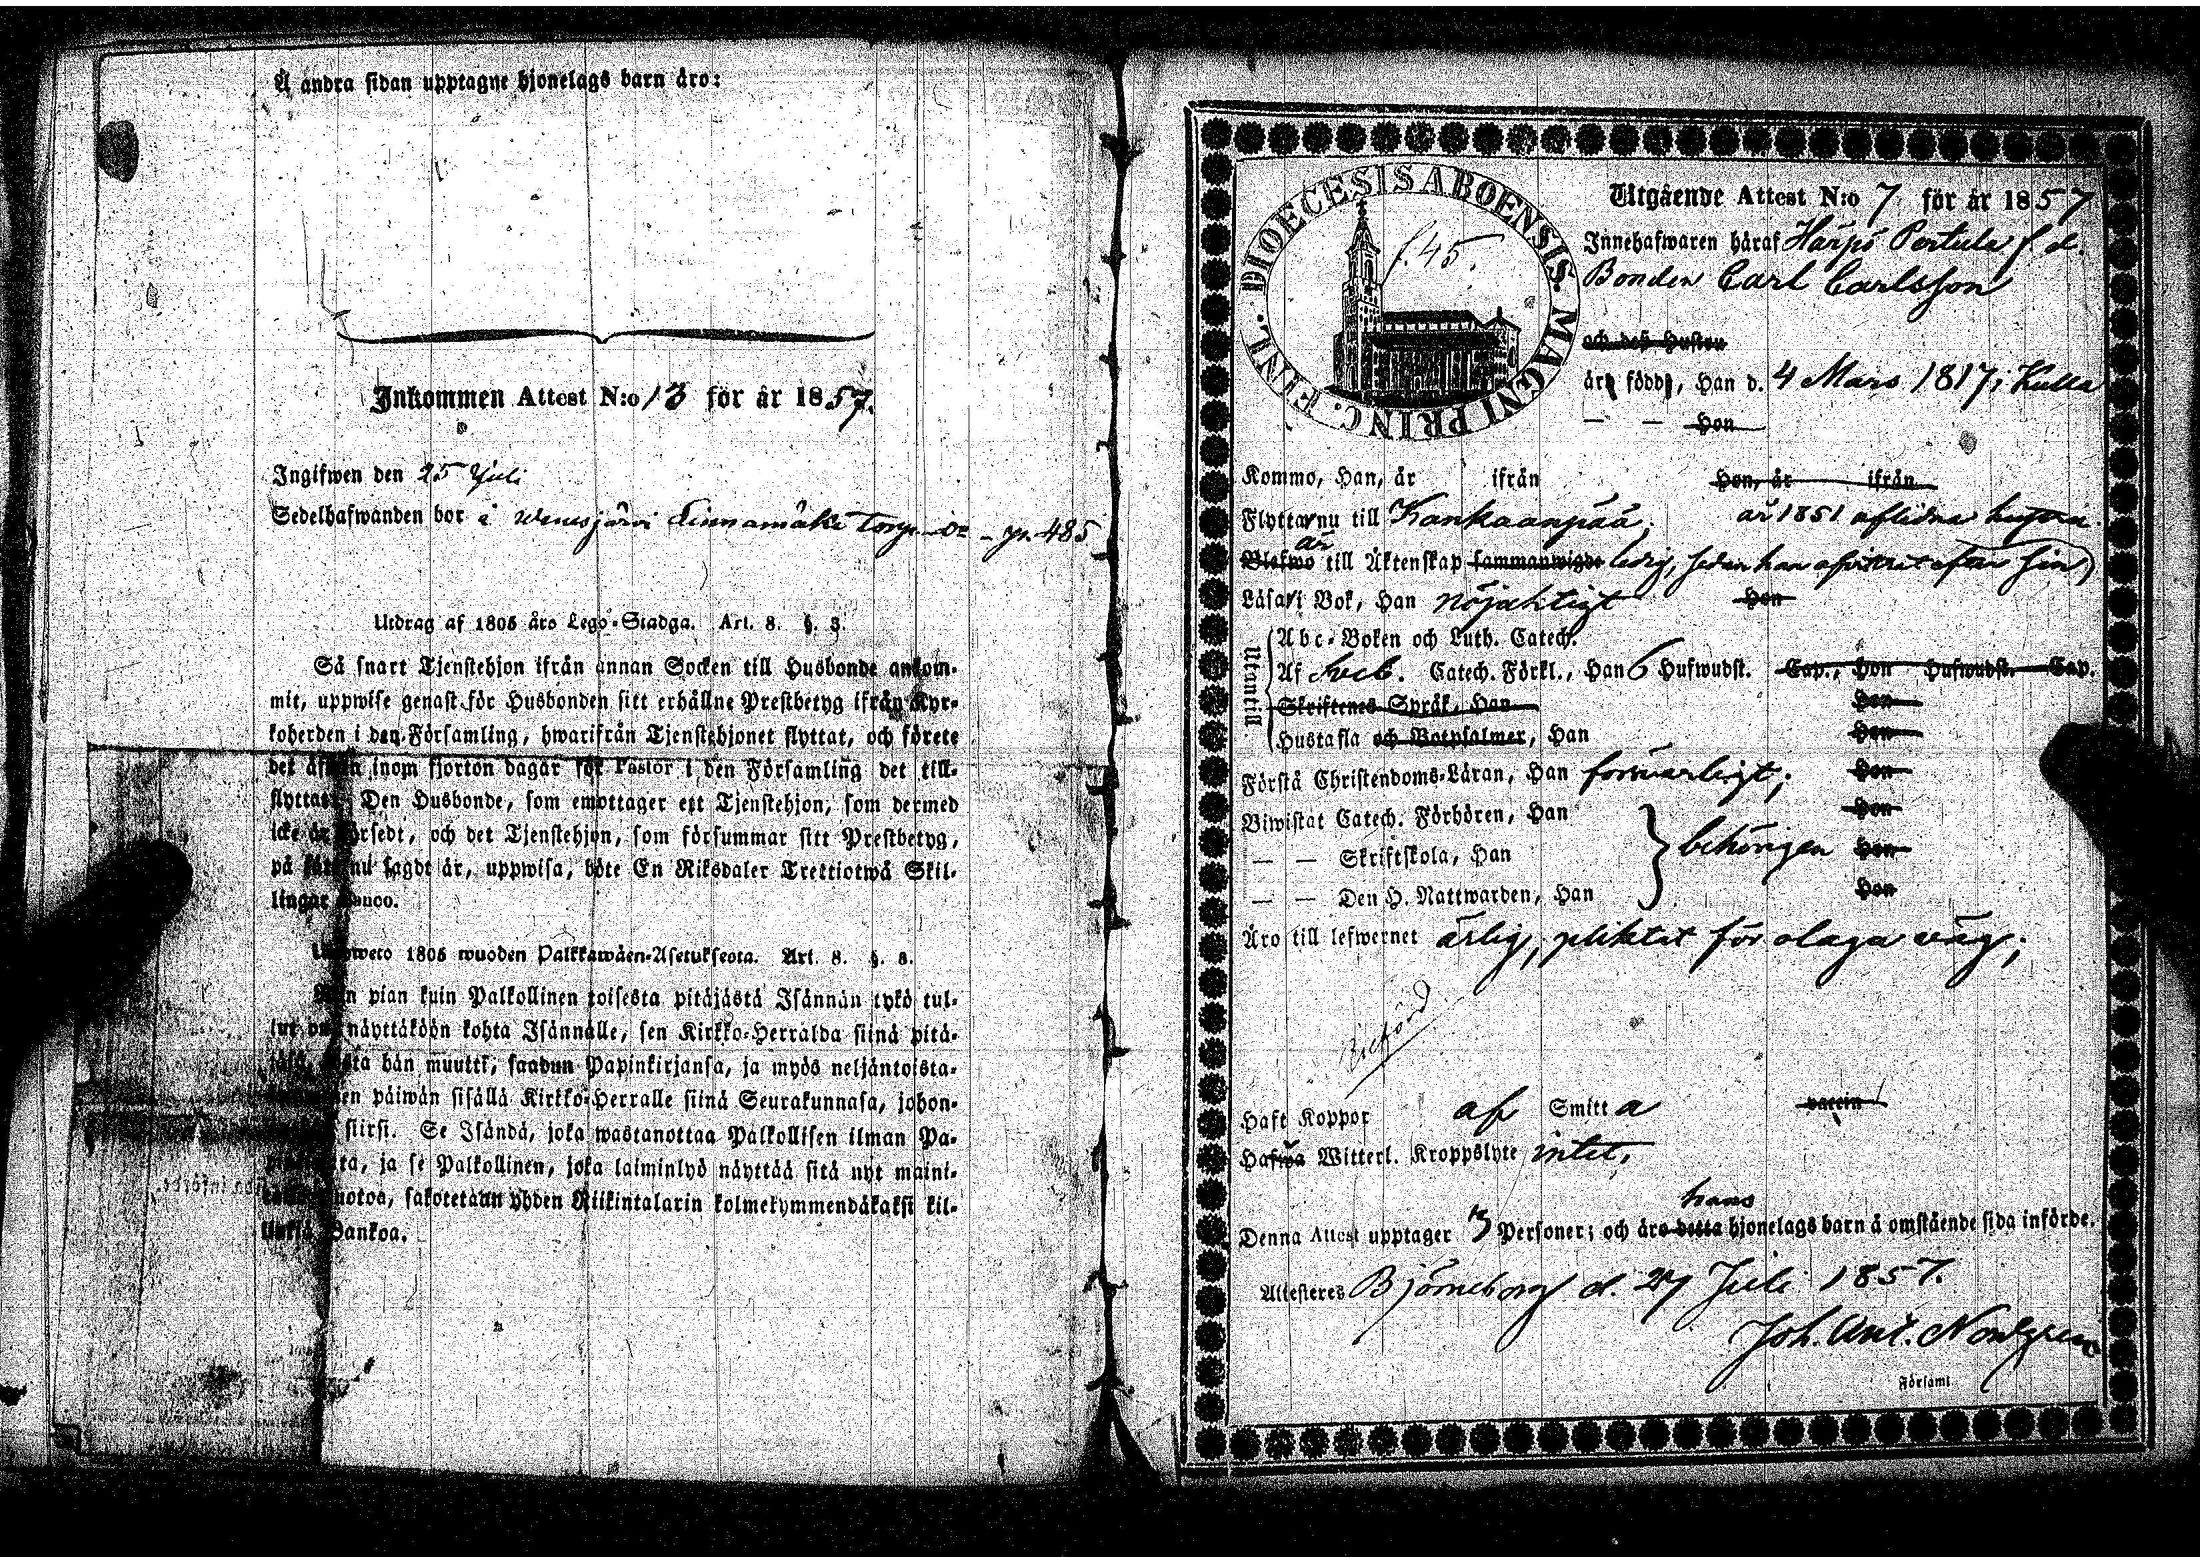 Å andra sidan upptagne hjonelags barn äro:
Inkommen Attest N:o 13 för år 1857.
Ingifwen den 25 Juli
Sedelhafwanden bor i Wenesjärvi Linnamäki Torp p. 485
Utdrag af 1805 års Lego-Stadga. Art. 8. §. 3.
Så snart Tjenstehjon ifrån annan Socken till Husbonde ankom-
mit, uppwise genast för Husbonden sitt erhållne Prestbetyg ifrån Kyr-
koherden i den Församling, hwarifrån Tjenstehjonet flyttat, och förete
det inom fjorton dagar för Pastor i den Församling det till-
flyttat. Den Husbonde, som emottager ett Tjenstehjon, som dermed
icke är försedt, och det Tjenstehjon, som försummar sitt Prestbetyg,
på sätt nu sagdt är, uppwisa, böte En Riksdaler Trettiotwå Skil-
lingar Banco.
1805 wuoden Palkkawäen-Asetuksesta. Art. 8. §. 3.
pian kuin Palkollinen toisesta pitäjästä Isännän tykö tul-
lut on, näyttäköön kohta Isännälle, sen Kirkko-Herralda siinä pitä-
jäsä, josta hän muutti, saadun Papinkirjansa, ja myös neljäntoista-
päiwän sisällä Kirkko-Herralle siinä Seurakunnasa, johon-
siirsi. Se Isändä, joka wastanottaa Palkollisen ilman Pa-
ja se Palkollinen, joka laiminlyö näyttää sitä nyt maini-
tulla muotoa, sakotetaan yhden Riikintalarin kolmekymmendäkaksi kil-
lingiä Bankoa.
DIOECESIS ABOENSIS. MAGNI PRINC. FINL.
f. 45.
Utgående Attest N:o 7 för år 1857
Innehafwaren häraf Harjo Pertula f. d.
Bonden Carl Carlsson
och deß Hustru
är född, Han d. 4 Mars 1817 i Kulla
— — Hon
Kommo, Han, år ifrån Hon, år ifrån
Flyttar nu till Kankaanpää. år 1851 aflidna hustru.
är
Blefwo till Äktenskap sammanwigde ledig, sedan han afvittrat efter sin
Läsa i Bok, Han nöjaktigt Hon
Utantill
Abc-Boken och Luth. Catech.
Af Sveb. Catech. Förkl., Han 6 Hufwudst. Cap., Hon Hufwudst. Cap.
Skriftenes Språk, Han Hon
Hustafla och Botpsalmer, Han Hon
Förstå Christendoms-Läran, Han försvarligt; Hon
Biwistat Catech. Förhören, Han Hon
— — Skriftskola, Han behörigen Hon
— — Den H. Nattwarden, Han Hon
Äro till lefwernet ärlig, pliktat för olaga väg;
Haft Koppor af Smitta vaccin
Hafwa Witterl. Kroppslyte intet.
hans
Denna Attest upptager 3 Personer; och äro detta hjonelags barn å omstående sida införde.
Attesteres Björneborg d. 27 Juli 1857.
Joh. Ant. Nordgren
Församl